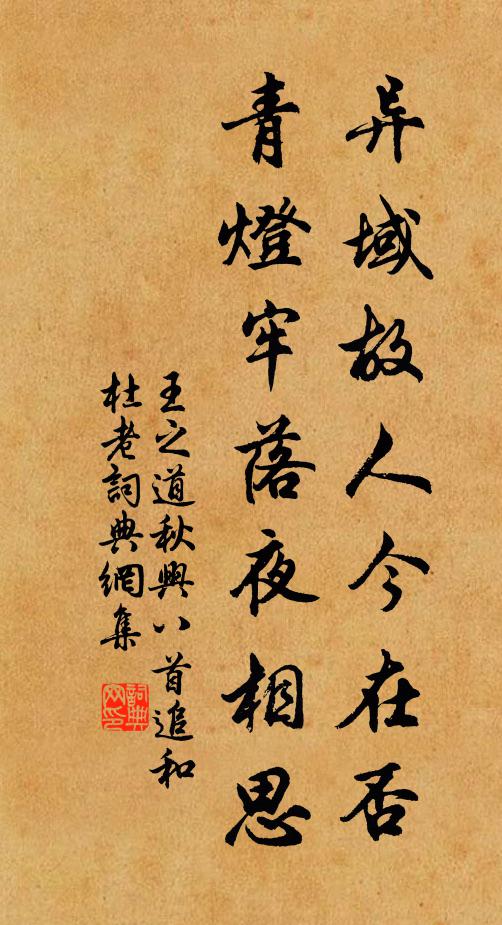 异域故人今在否
青燈牢落夜相思
王之道秋興八首追和
杜老詞典網集
詞典网印